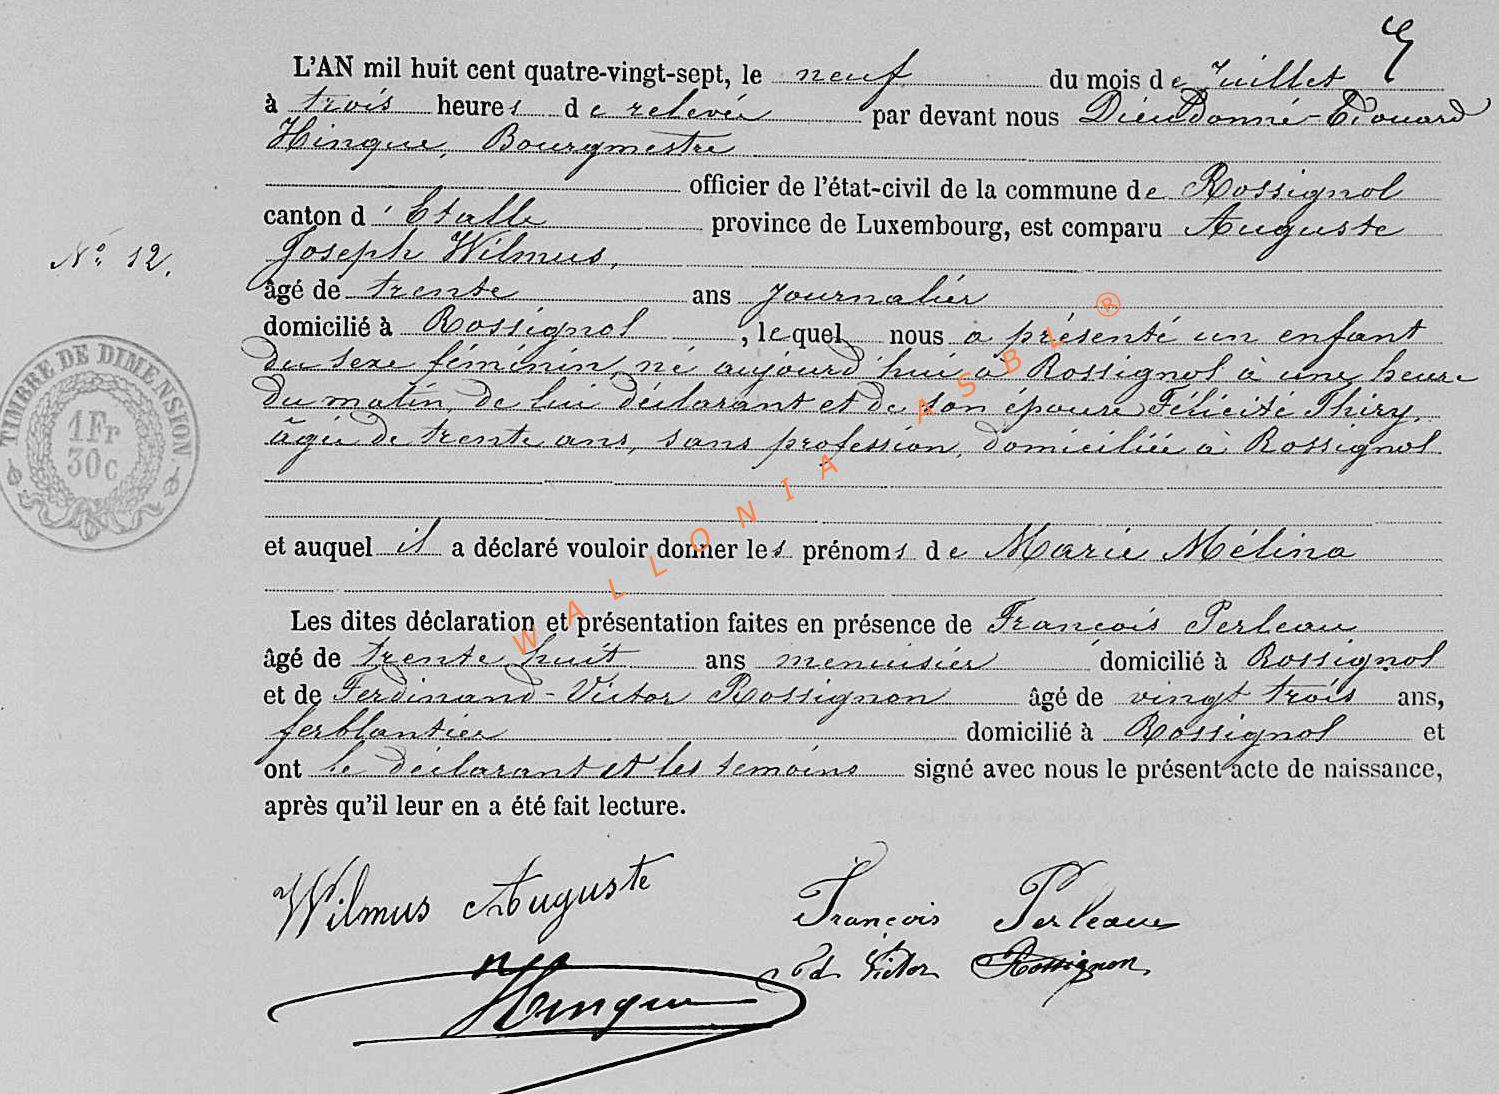 L'AN mil huit cent quatre-vingt-sept, le neuf du mois de Juillet
à trois heures de relevée par devant nous Dieudonné-Edouard
Hinque, Bourgmestre
officier de l'état-civil de la commune de Rossignol
canton d'Etalle province de Luxembourg, est comparu Auguste
Joseph Wilmus,
N° 12.
âgé de trente ans journalier
domicilié à Rossignol, lequel nous a présenté un enfant
du sexe féminin, né aujourd'hui à Rossignol à une heure
du matin, de lui déclarant et de son épouse Félicité Thiry,
âgée de trente ans, sans profession, domiciliée à Rossignol
TIMBRE DE DIMENSION
1 Fr
30c
et auquel il a déclaré vouloir donner les prénoms de Marie Mélina
Les dites déclaration et présentation faites en présence de François Perleau
âgé de trente huit ans menuisier domicilié à Rossignol
et de Ferdinand-Victor Rossignon âgé de vingt trois ans,
ferblantier domicilié à Rossignol et
ont le déclarant et les témoins signé avec nous le présent acte de naissance,
après qu'il leur en a été fait lecture.
Wilmus Auguste François Perleaux
Fd. Victor Rossignon
Hinque
WALLONIA ASBL ®